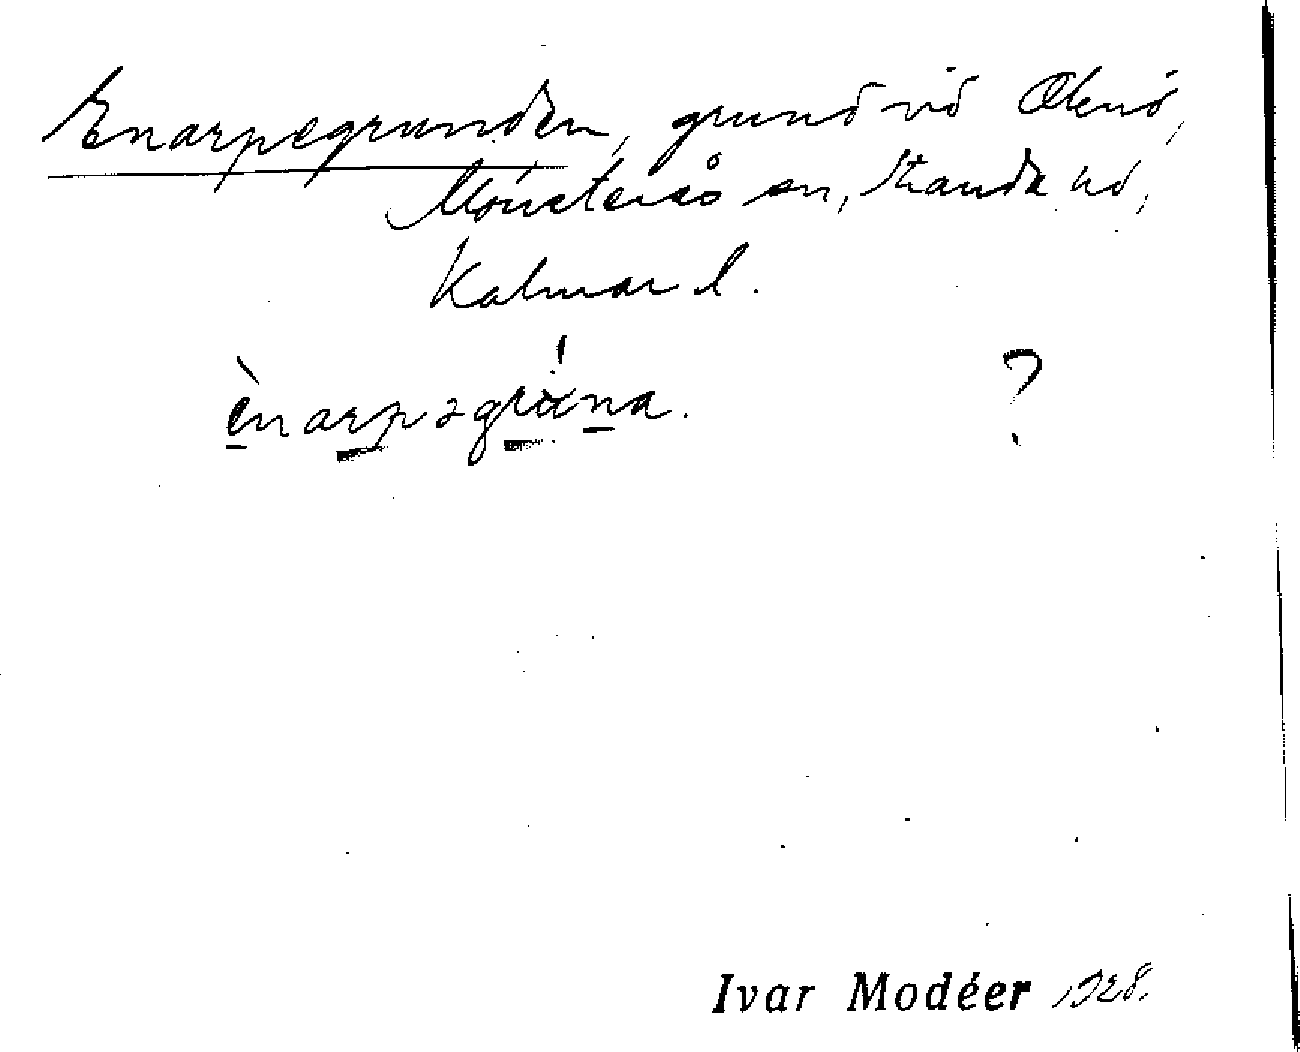 Enarpegrunden, grund vid Oknö,
Mönsterås sn, Stranda hd,
Kalmar l.
ènarpəgrùna. ?
Ivar Modéer 1928.